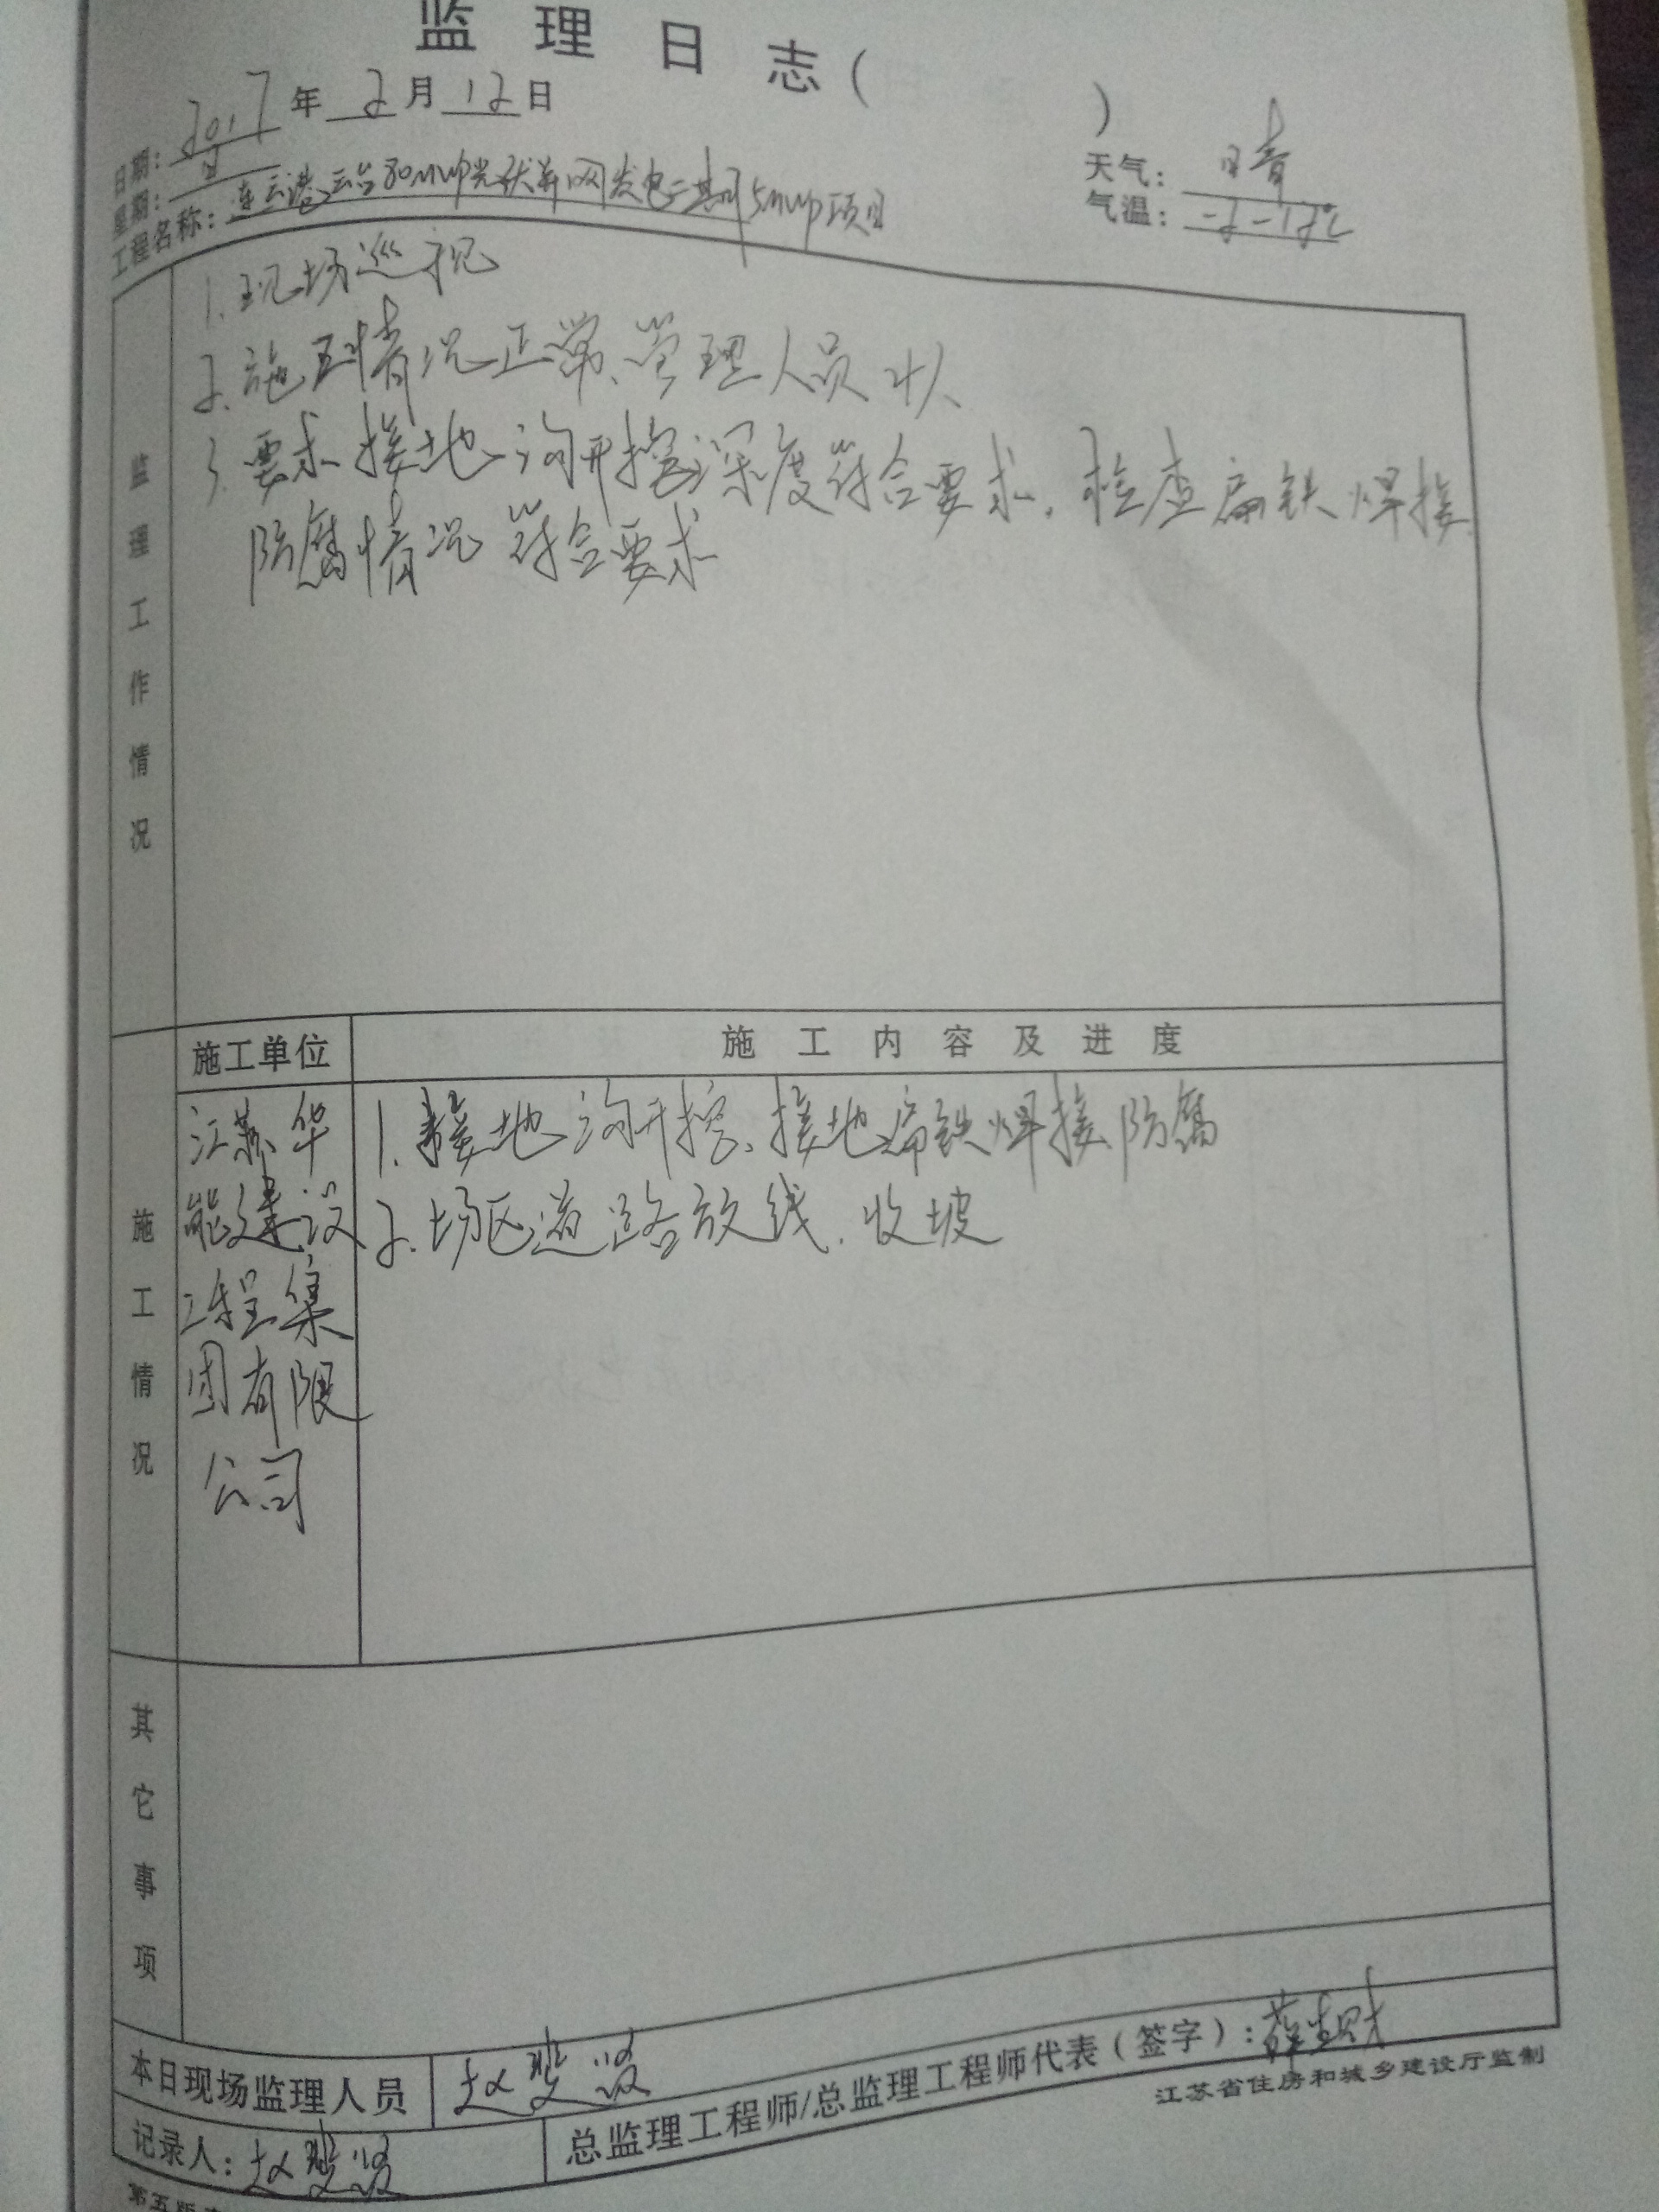 监理日志（ ）
日期：2017年2月12日
星期：日
天气：晴
气温：-2-12℃
工程名称：连云港云台80MWp光伏并网发电二期35MWp项目
监理工作情况
1.现场巡视
2.施工情况正常、管理人员2人
3.要求接地沟开挖深度符合要求.检查扁铁焊接
防腐情况符合要求
施工情况
施工单位
施工内容及进度
江苏华
能建设
工程集
团有限
公司
1.接地沟开挖、接地扁铁焊接防腐
2.场区道路放线.收坡
其它事项
本日现场监理人员
记录人：
总监理工程师/总监理工程师代表（签字）：
江苏省住房和城乡建设厅监制
第五版